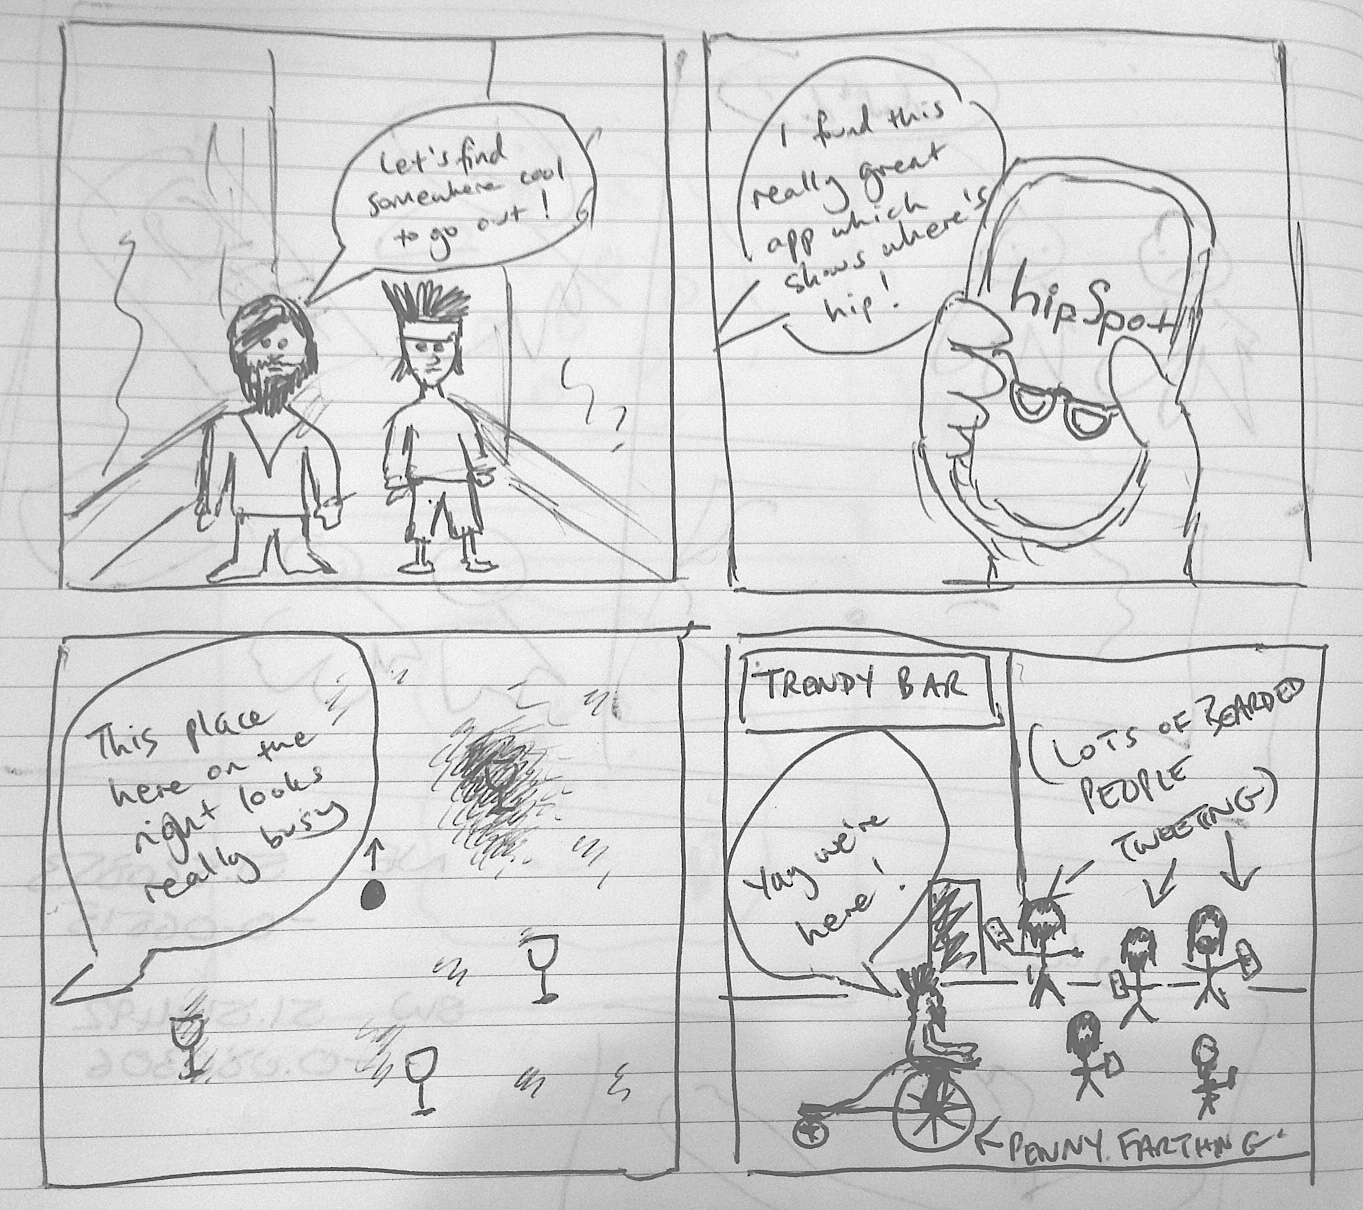 Let's find
somewhere cool
to go out!
I found this
really great
app which
shows where's
hip!
hipSpot
This place
here on the
right looks
really busy
TRENDY BAR
(LOTS OF BEARDED
PEOPLE
TWEETING)
Yay we're
here!
PENNY FARTHING